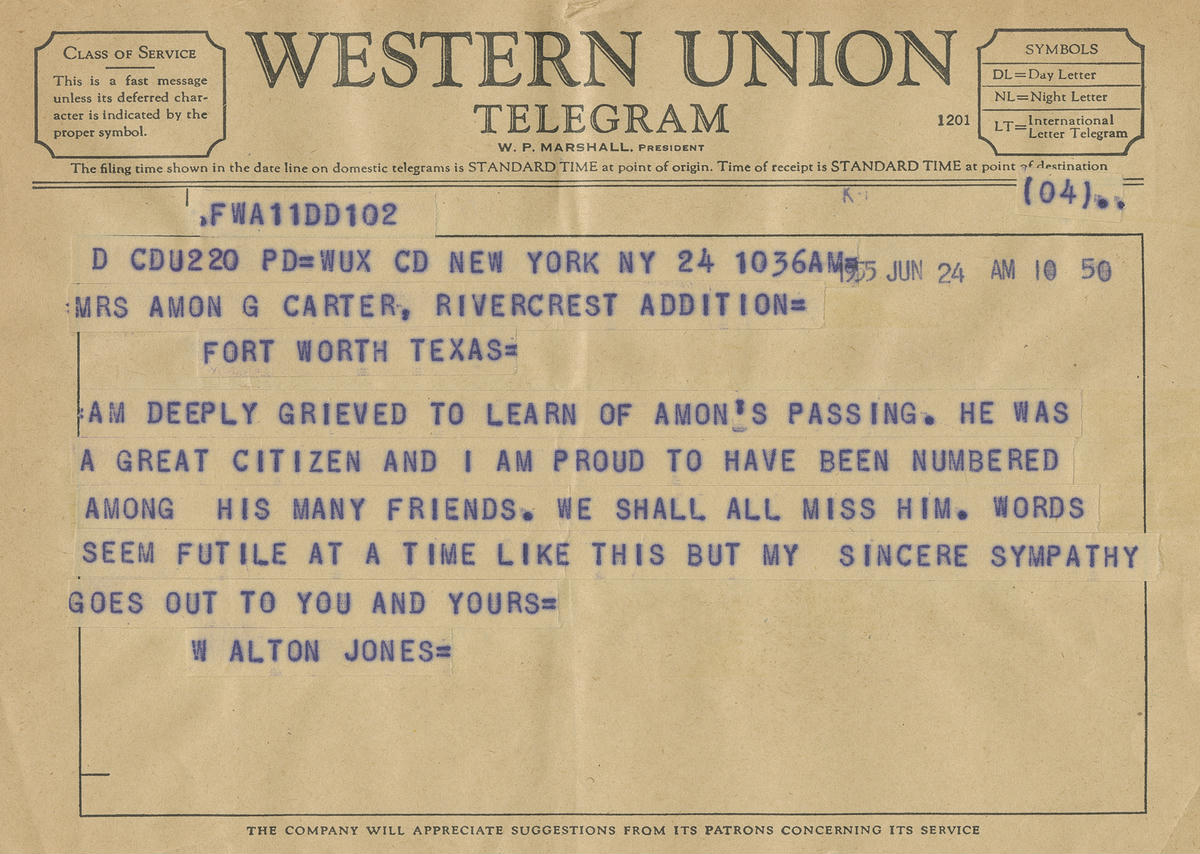 CLASS OF SERVICE
This is a fast message
unless its deferred char-
acter is indicated by the
proper symbol.
WESTERN UNION
TELEGRAM
W. P. MARSHALL, PRESIDENT
1201
SYMBOLS
DL=Day Letter
NL=Night Letter
LT=International
Letter Telegram
The filing time shown in the date line on domestic telegrams is STANDARD TIME at point of origin. Time of receipt is STANDARD TIME at point of destination
(04)..
.FWA11DD102
D CDU220 PD=WUX CD NEW YORK NY 24 1036AM=
1955 JUN 24 AM 10 50
:MRS AMON G CARTER, RIVERCREST ADDITION=
FORT WORTH TEXAS=
:AM DEEPLY GRIEVED TO LEARN OF AMON'S PASSING. HE WAS
A GREAT CITIZEN AND I AM PROUD TO HAVE BEEN NUMBERED
AMONG HIS MANY FRIENDS. WE SHALL ALL MISS HIM. WORDS
SEEM FUTILE AT A TIME LIKE THIS BUT MY SINCERE SYMPATHY
GOES OUT TO YOU AND YOURS=
W ALTON JONES=
THE COMPANY WILL APPRECIATE SUGGESTIONS FROM ITS PATRONS CONCERNING ITS SERVICE